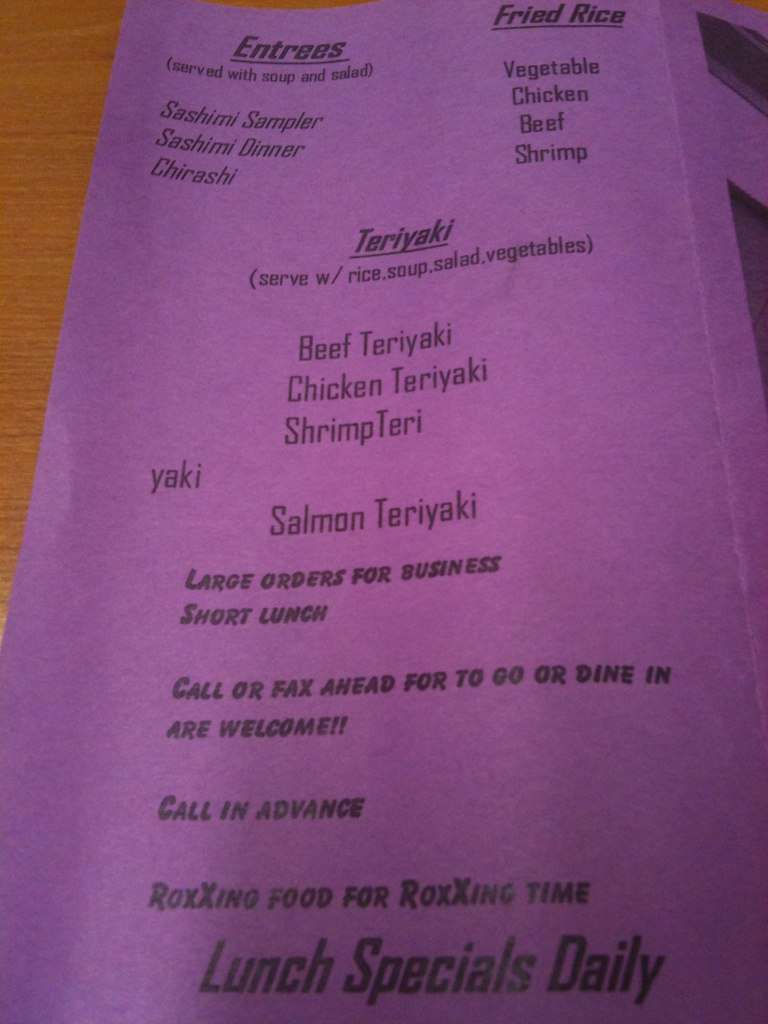 Entrees
(served with soup and salad)
Sashimi Sampler
Sashimi Dinner
Chirashi
Fried Rice
Vegetable
Chicken
Beef
Shrimp
Teriyaki
(serve w/ rice,soup,salad,vegetables)
Beef Teriyaki
Chicken Teriyaki
ShrimpTeri
yaki
Salmon Teriyaki
LARGE ORDERS FOR BUSINESS
SHORT LUNCH
CALL OR FAX AHEAD FOR TO GO OR DINE IN
ARE WELCOME!!
CALL IN ADVANCE
ROXXING FOOD FOR ROXXING TIME
Lunch Specials Daily